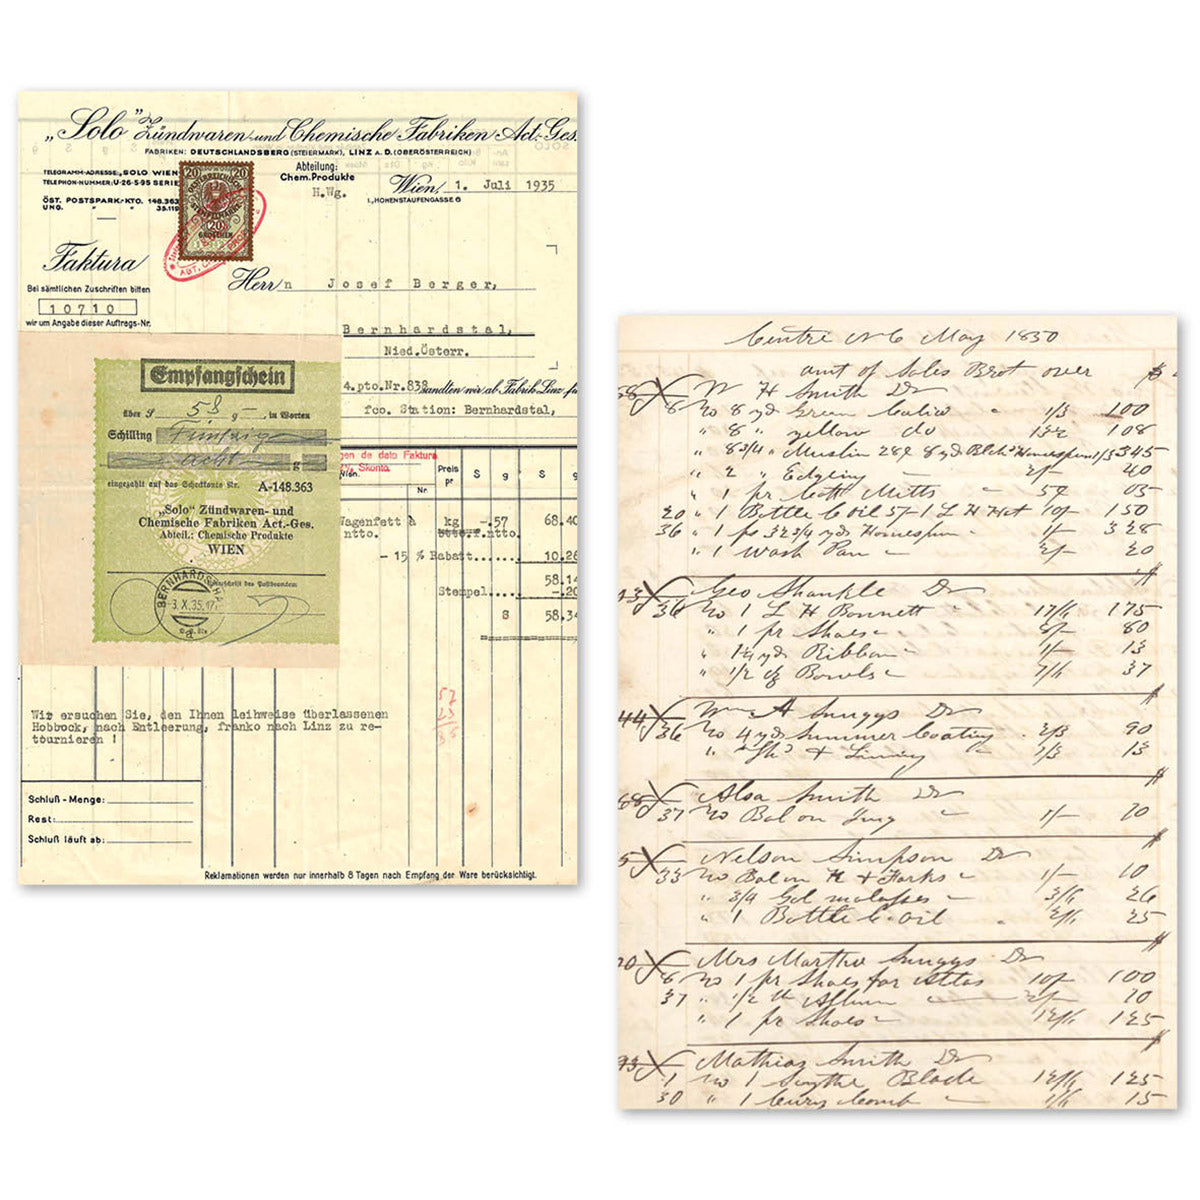 „Solo” Zündwaren- und Chemische Fabriken Act.-Ges.
FABRIKEN: DEUTSCHLANDSBERG (STEIERMARK), LINZ A. D. (OBERÖSTERREICH)
TELEGRAMM-ADRESSE „SOLO WIEN
TELEPHON-NUMMER: U-26-5-95 SERIE
ÖST. POSTSPARK.-KTO. 148.363
UNG. " " 35.119
20 20
20
GROSCHEN
Abteilung:
Chem. Produkte
H.Wg.
Wien, 1. Juli 1935
I., HOHENSTAUFENGASSE 6
Faktura
Bei sämtlichen Zuschriften bitten
10710
wir um Angabe dieser Auftrags-Nr.
Herrn Josef Berger,
Bernhardstal,
Nied.Österr.
4.pto.Nr.838 sandten wir ab Fabrik Linz
fco. Station: Bernhardstal,
Empfangschein
über S 58 g —, in Worten
Schilling Fünfzig
acht g
eingezahlt auf das Scheckkonto Nr. A-148.363
„Solo” Zündwaren- und
Chemische Fabriken Act.-Ges.
Abteil.: Chemische Produkte
WIEN
Unterschrift des Postbeamten
BERNHARDSTHAL
-3.X.35.17
gen de dato Faktura
% Skonto.
Preis
pr S g S g
Nr.
Wagenfett à kg -.57 68.40
ntto. btto.f.ntto.
- 15 % Rabatt.... 10.26
58.14
Stempel..... -.20
S 58.34
57
Wir ersuchen Sie, den Ihnen leihweise überlassenen
Hobbock, nach Entleerung, franko nach Linz zu re-
tournieren !
Schluß - Menge:
Rest:
Schluß läuft ab:
Reklamationen werden nur innerhalb 8 Tagen nach Empfang der Ware berücksichtigt.
Centre N C May 1850
amt of Sales Brot over $
58 W H Smith Dr
8 To 8 yd Green Calico " 1/3 100
" 8 " yellow do 108
" 8 3/4 " Muslin 28¢ 8 yd Blchd Homespun 1/3 345
" 2 " Edgeing 2/- 40
" 1 pr Cott Mitts " 5¢ 05
20 " 1 Bottle C oil 5/- 1 L H Hat 10/- 150
36 " 1 ps 32 3/4 yds Homespun " 1/- 328
" 1 Wash Pan 2/- 20
Geo Shankle Dr
36 To 1 L H Bonnett " 17/6 175
" 1 pr Shoes 8/- 80
" 1 1/4 yds Ribbon 1/- 13
" 1/2 dz Bowls 7/6 37
44 Wm A Snuggs Dr
36 To 4 yds Summer Coating 2/3 90
" Shd & Lining 1/3 13
68 Alsa Smith Dr
37 To Bal on 1/- 10
5 Nelson Simpson Dr
33 To Bal on K & Forks 1/- 10
" 3/4 Gal molasses 3/6 26
" 1 Bottle C. Oil 2/6 25
Mrs Martha Snuggs Dr
6 To 1 pr Shoes for Atlas 10/- 100
37 " 1/2 lb Allum 2/- 10
" 1 pr Shoes 12/6 125
Mathias Smith Dr
1 To 1 Scythe Blade 12/6 125
30 " 1 Curry Comb 1/6 15